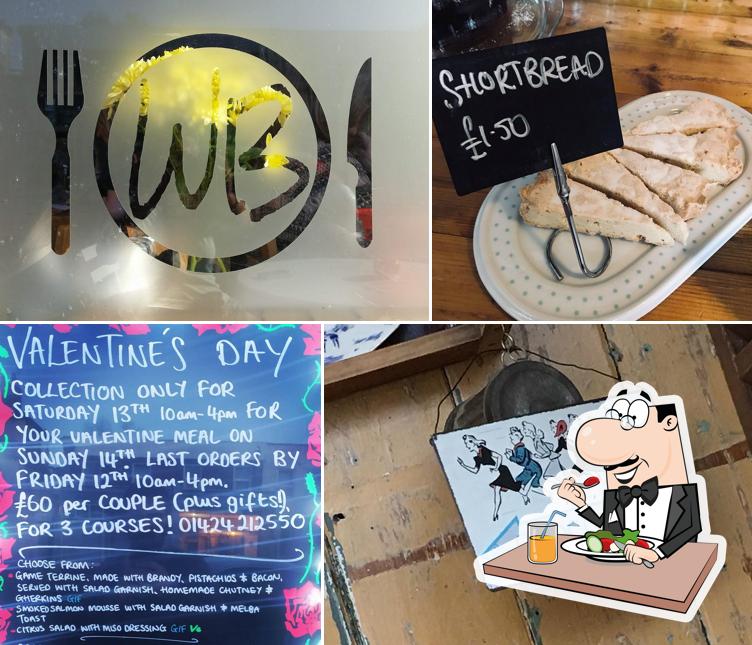 WB
SHORTBREAD
£1.50
VALENTINE'S DAY
COLLECTION ONLY FOR
SATURDAY 13TH 10am-4pm FOR
YOUR VALENTINE MEAL ON
SUNDAY 14TH. LAST ORDERS BY
FRIDAY 12TH 10am-4pm.
£60 per COUPLE (plus gifts!),
FOR 3 COURSES! 01424 212550
CHOOSE FROM:
- GAME TERRINE, MADE WITH BRANDY, PISTACHIOS & BACON,
SERVED WITH SALAD GARNISH, HOMEMADE CHUTNEY &
GHERKINS GIF
- SMOKED SALMON MOUSSE WITH SALAD GARNISH & MELBA
TOAST
- CITRUS SALAD WITH MISO DRESSING GIF Ve